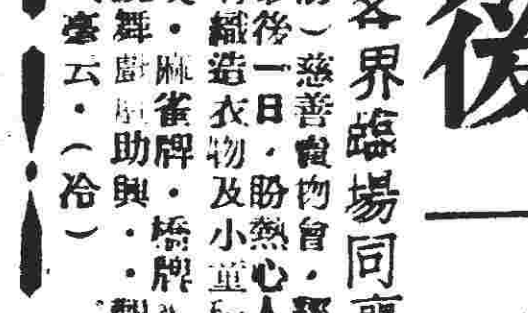 後
各界臨場同
）慈善賣物會・
後一日・盼熱心人
織造衣物及小童
・麻雀牌・橋牌
舞戲助興・・
臺云・（冷）